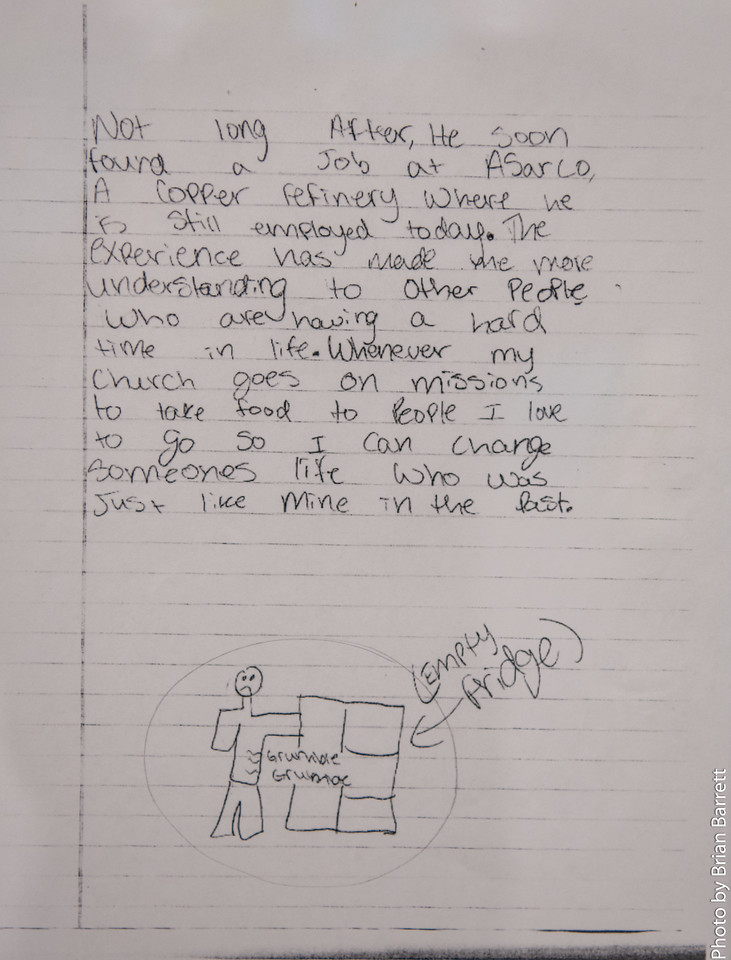 Not long After, He soon
found a Job at ASarCo,
A Copper refinery where he
is still employed today. The
experience has made me more
understanding to other People
who are having a hard
time in life. Whenever my
Church goes on missions
to take food to People I love
to go so I can change
someones life who was
Just like mine in the Past.
(Empty
fridge)
Grumble
Grumble
Photo by Brian Barrett